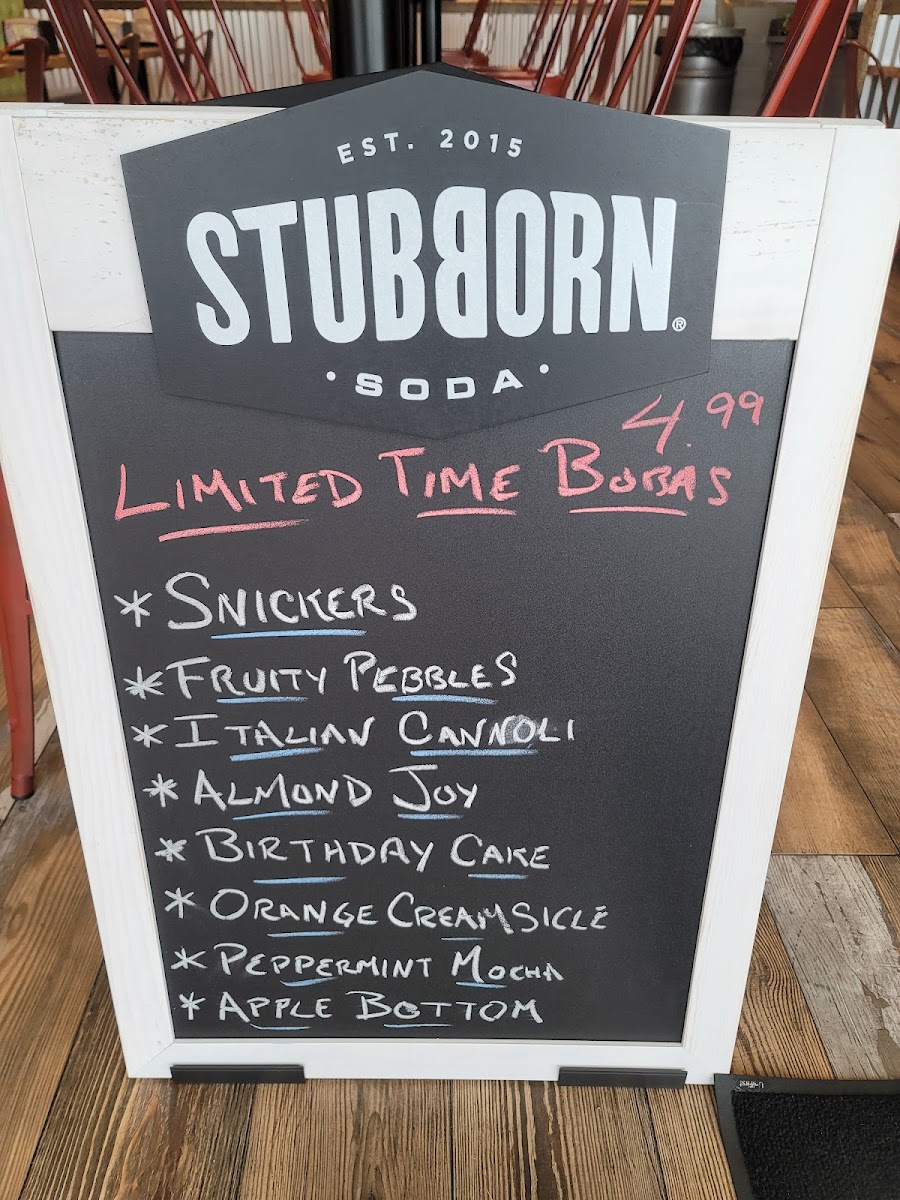 EST. 2015
STUBBORN®
• SODA •
4.99
LIMITED TIME BOBAS
* SNICKERS
* FRUITY PEBBLES
* ITALIAN CANNOLI
* ALMOND JOY
* BIRTHDAY CAKE
* ORANGE CREAMSICLE
* PEPPERMINT MOCHA
* APPLE BOTTOM
UniFirst